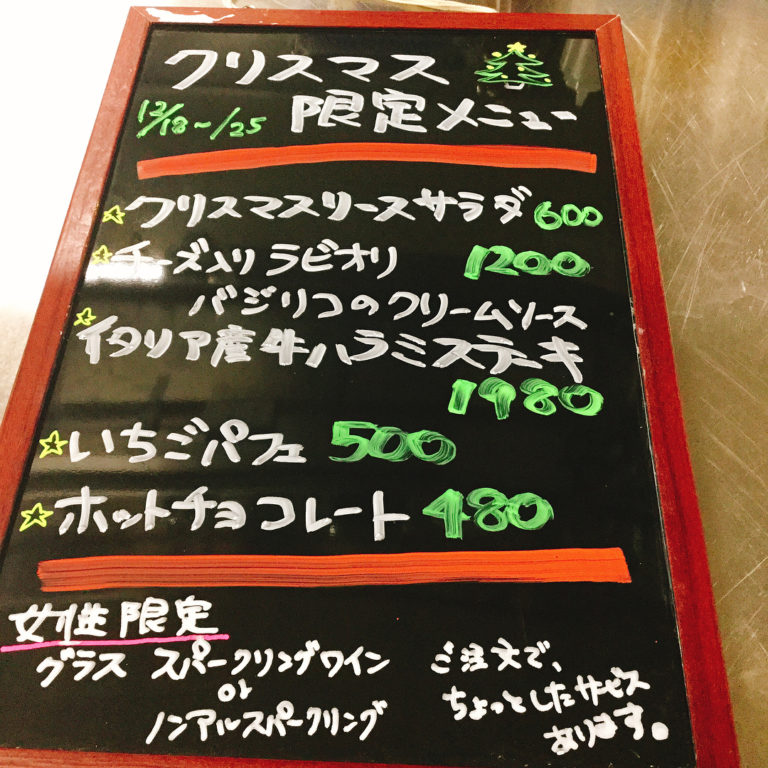 クリスマス
12/18〜/25 限定メニュー
☆クリスマスリースサラダ 600
☆チーズ入りラビオリ 1200
バジリコのクリームソース
☆イタリア産牛ハラミステーキ
1980
☆いちごパフェ 500
☆ホットチョコレート 480
女性限定
グラス スパークリングワイン
or
ノンアルスパークリング
ご注文で、
ちょっとしたサービス
あります。